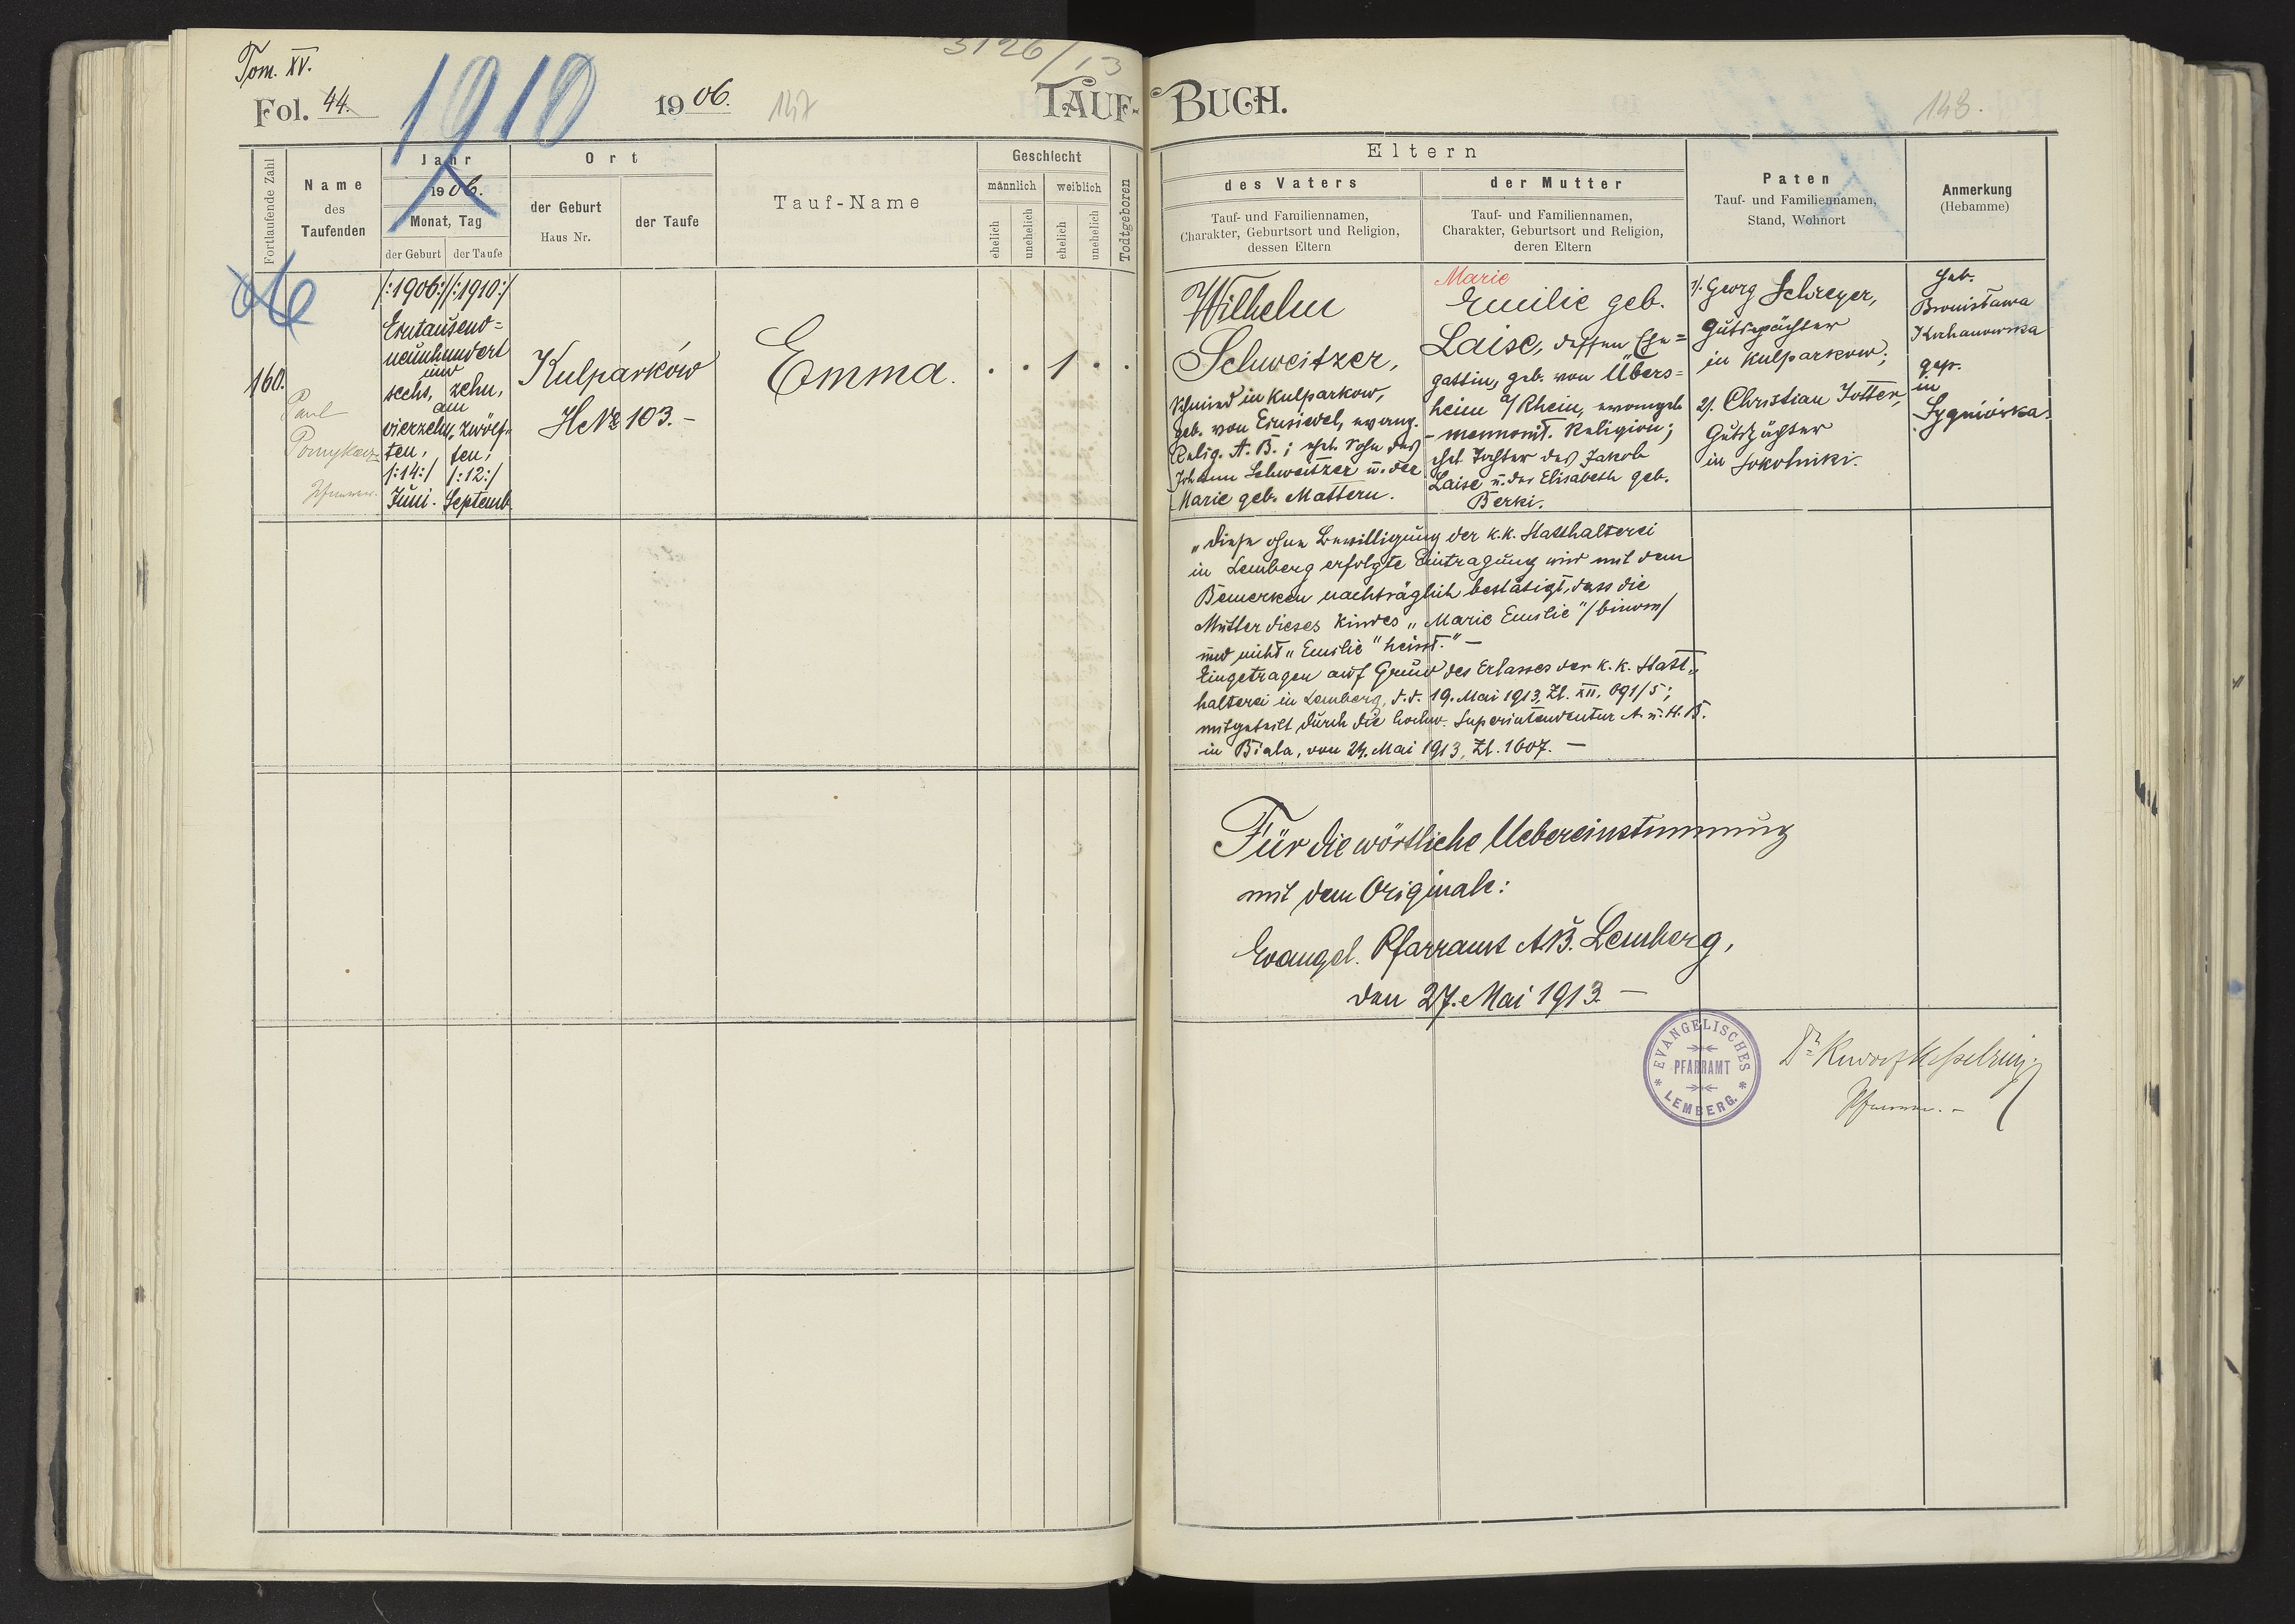 Tom. XV.
3126/13
Fol. 44.
1910
1906.
147
TAUF-BUCH.
148.
Fortlaufende Zahl
Name
des
Taufenden
Jahr
1906.
Monat, Tag
der Geburt
der Taufe
Ort
der Geburt
Haus Nr.
der Taufe
Tauf-Name
Geschlecht
männlich
weiblich
ehelich
unehelich
ehelich
unehelich
Todtgeboren
Eltern
des Vaters
Tauf- und Familiennamen,
Charakter, Geburtsort und Religion,
dessen Eltern
der Mutter
Tauf- und Familiennamen,
Charakter, Geburtsort und Religion,
deren Eltern
Paten
Tauf- und Familiennamen,
Stand, Wohnort
Anmerkung
(Hebamme)
160.
Paul
Pfarrer.
/:1906:/ /:1910:/
Eintausend=
neunhundert
und
sechs, zehn,
am
vierzehn, zwölf=
ten, ten,
/:14:/ /:12:/
Juni. Septemb.
Kulparków
H. № 103.-
Emma.
. . 1 . .
Wilhelm
Schweitzer,
Schmied in Kulparkow,
geb. von Einsiedel, evang.
Relig. A. B.; ehel. Sohn des
Johann Schweitzer u. der
Marie geb. Mattern.
Marie
Emilie geb.
Laise, dessen Ehe=
gattin, geb. von Übers=
heim a/Rhein, evangel.
- mennonit. Religion;
ehel. Tochter des Jakob
Laise u. der Elisabeth geb.
Berki.
1/. Georg Schreyer,
Gutspächter
in Kulparkow;
2/. Christian Jotter,
Gutspächter
in Sokolniki.
Heb.
Bronisława
Kochanowska
gep.
in
Sygniówka.
„Diese ohne Bewilligung der k.k. Statthalterei
in Lemberg erfolgte Eintragung wird mit dem
Bemerken nachträglich bestätigt, dass die
Mutter dieses Kindes „Marie Emilie" /binom/
und nicht „Emilie" heisst." -
Eingetragen auf Grund des Erlasses der k. k. Statt=
halterei in Lemberg, d. d. 19. Mai 1913, Zl. XII. 691/5;
mitgeteilt durch die hochw. Superintendentur A. u. H. B.
in Biala, von 24. Mai 1913, Zl. 1607. -
Für die wörtliche Uebereinstimmung
mit dem Originale:
Evangel. Pfarramt A.B. Lemberg,
den 27. Mai 1913. -
EVANGELISCHES
PFARRAMT
LEMBERG.
Dr. Rudolf Kesselring
Pfarrer. -